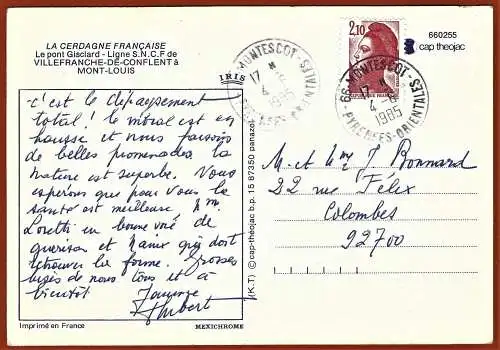 LA CERDAGNE FRANÇAISE
Le pont Gisclard - Ligne S.N.C.F de
VILLEFRANCHE-DE-CONFLENT à
MONT-LOUIS
IRIS
c'est le dépaysement
total ! le moral est en
hausse et nous faisons
de belles promenades, la
nature est superbe. Nous
espérons que pour vous la
santé est meilleure Mme
Loretti en bonne voie de
guérison et doit
retrouver la forme. Grosses
bises de nous tous et à
bientôt
Hubert
Imprimé en France
MEXICHROME
(K.T) © cap-théojac b.p. 15 87350 panazol
66 MONTESCOT
17 H
4 -6
1985
PYRENEES-ORIENTALES
2,10
66 MONTESCOT
17 H
4 -6
1985
PYRENEES-ORIENTALES
660255
cap theojac
M. et Mme J Bonnard
22 rue Félix
Colombes
92700